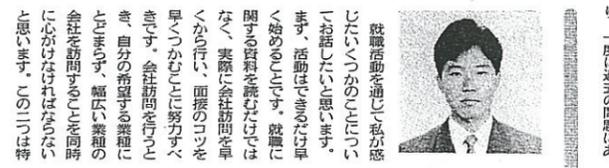 り、一度に過去の問題にあ
就職活動を通じて私が感
じたいくつかのことについ
てお話したいと思います。
まず、活動はできるだけ早
く始めることです。就職に
関する資料を読むだけでは
なく、実際に会社訪問を早
くから行い、面接のコツを
早くつかむことに努力すべ
きです。会社訪問を行うと
き、自分の希望する業種に
とどまらず、幅広い業種の
会社を訪問することを同時
に心がけなければならない
と思います。この二つは特